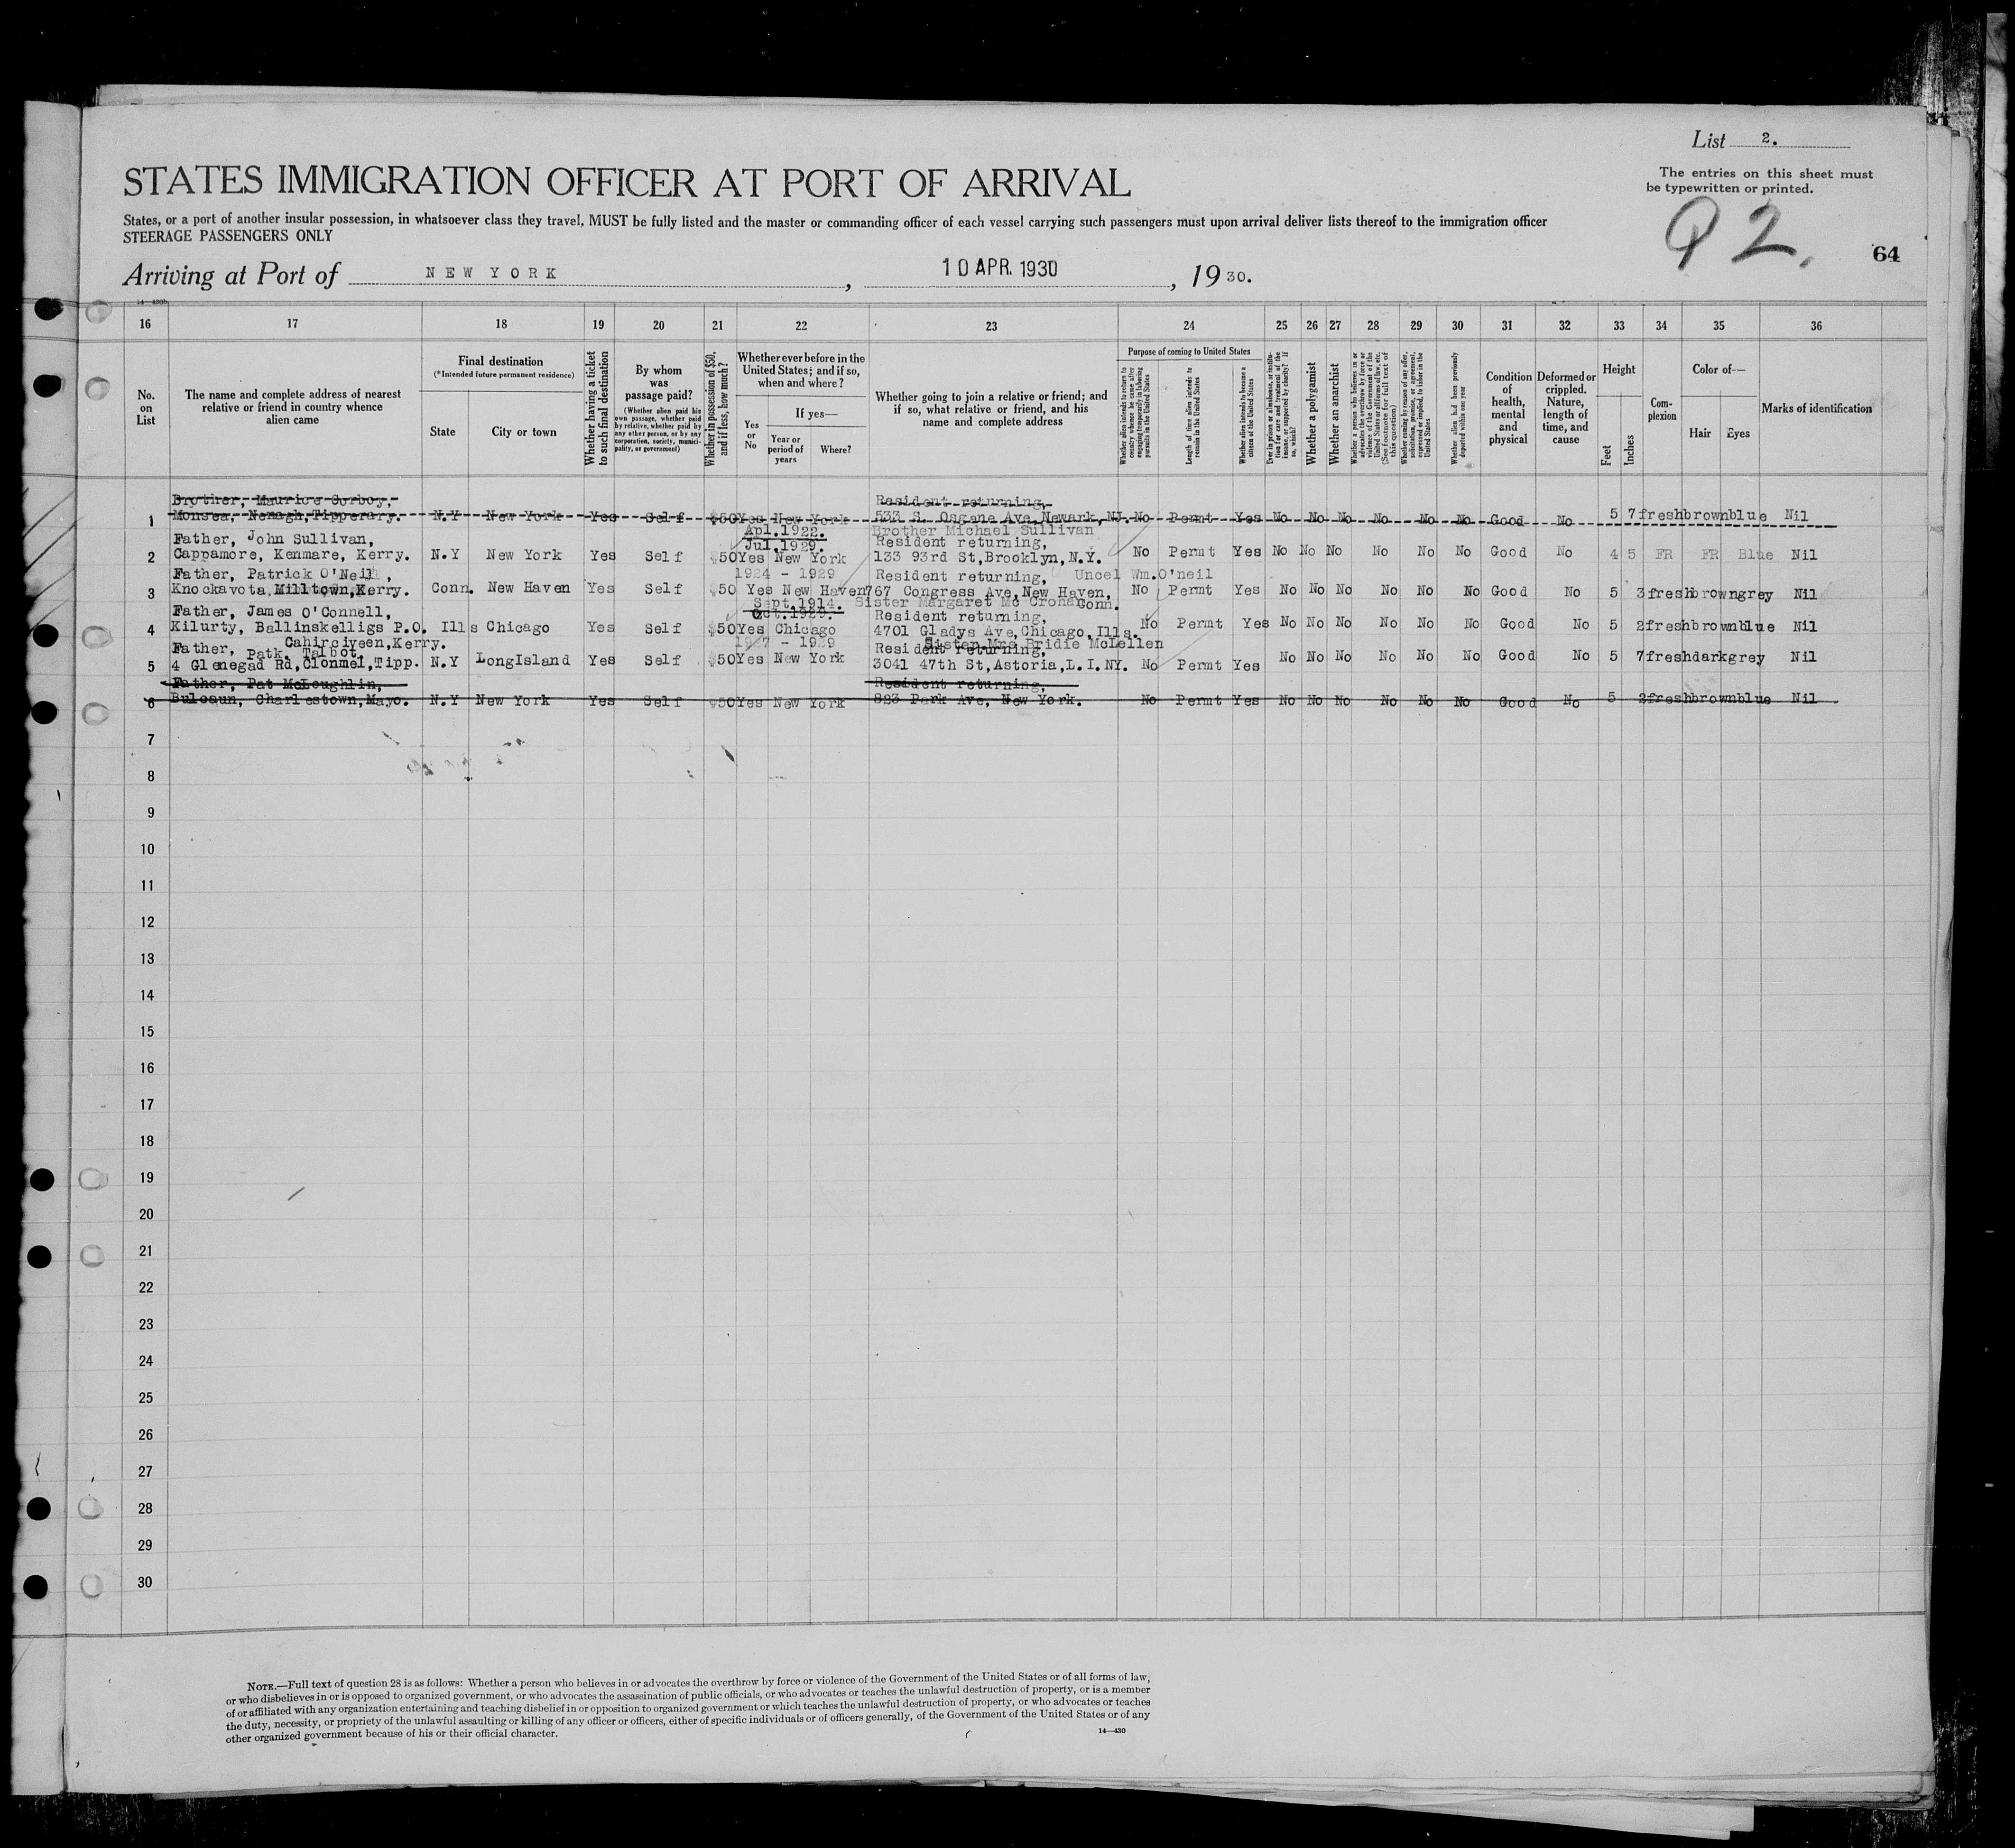 List 2.
The entries on this sheet must
be typewritten or printed.
STATES IMMIGRATION OFFICER AT PORT OF ARRIVAL
States, or a port of another insular possession, in whatsoever class they travel, MUST be fully listed and the master or commanding officer of each vessel carrying such passengers must upon arrival deliver lists thereof to the immigration officer
STEERAGE PASSENGERS ONLY
92.
64
Arriving at Port of NEW YORK, 10 APR. 1930, 1930.
16 17 18 19 20 21 22 23 24 25 26 27 28 29 30 31 32 33 34 35 36
No. on List
The name and complete address of nearest relative or friend in country whence alien came
Final destination
(*Intended future permanent residence)
State
City or town
Whether having a ticket to such final destination
By whom was passage paid?
(Whether alien paid his own passage, whether paid by relative, whether paid by any other person, or by any corporation, society, municipality, or government)
Whether in possession of $50, and if less, how much?
Whether ever before in the United States; and if so, when and where?
Yes or No
If yes—
Year or period of years
Where?
Whether going to join a relative or friend; and if so, what relative or friend, and his name and complete address
Purpose of coming to United States
Whether alien intends to return to country whence he came after engaging temporarily in laboring pursuits in the United States
Length of time alien intends to remain in the United States
Whether alien intends to become a citizen of the United States
Ever in prison or almshouse, or institution for care and treatment of the insane, or supported by charity? If so, which?
Whether a polygamist
Whether an anarchist
Whether a person who believes in or advocates the overthrow by force or violence of the Government of the United States or all forms of law, etc. (See footnote for full text of this question)
Whether coming by reason of any offer, solicitation, promise, or agreement, expressed or implied, to labor in the United States
Whether alien had been previously deported within one year
Condition of health, mental and physical
Deformed or crippled. Nature, length of time, and cause
Height
Feet
Inches
Complexion
Color of—
Hair
Eyes
Marks of identification
Brother, Maurice Resident returning,
1 Monsea, Nenagh, Tipperary. N.Y New York Yes Self $50 Yes New York 533 S. Ave, Newark, NJ. No Permt Yes No No No No No No Good No 5 7 fresh brown blue Nil
Apl. 1922. Brother Michael Sullivan
Father, John Sullivan, Jul. 1929. Resident returning,
2 Cappamore, Kenmare, Kerry. N.Y New York Yes Self $50 Yes New York 133 93rd St, Brooklyn, N.Y. No Permt Yes No No No No No No Good No 4 5 FR FR Blue Nil
Father, Patrick O'Neil, 1924 - 1929 Resident returning, Uncel Wm. O'neil
3 Knockavota, Milltown, Kerry. Conn. New Haven Yes Self $50 Yes New Haven 767 Congress Ave, New Haven, Conn. No Permt Yes No No No No No No Good No 5 3 fresh brown grey Nil
Sept. 1914. Sister Margaret Mc
Father, James O'Connell, Oct. 1929. Resident returning,
4 Kilurty, Ballinskelligs P.O. Ills Chicago Yes Self $50 Yes Chicago 4701 Gladys Ave, Chicago, Ills. No Permt Yes No No No No No No Good No 5 2 fresh brown blue Nil
Cahirciveen, Kerry. 1927 - 1929 Sister Mrs. Bridie McLellen
Father, Patk. Talbot, Resident returning,
5 4 Glenegad Rd, Clonmel, Tipp. N.Y Long Island Yes Self $50 Yes New York 3041 47th St, Astoria, L.I.NY. No Permt Yes No No No No No No Good No 5 7 fresh dark grey Nil
Father, Pat McLoughlin, Resident returning,
6 Bulcaun, Charlestown, Mayo. N.Y New York Yes Self $50 Yes New York 823 Park Ave, New York. No Permt Yes No No No No No No Good No 5 2 fresh brown blue Nil
7
8
9
10
11
12
13
14
15
16
17
18
19
20
21
22
23
24
25
26
27
28
29
30
NOTE.—Full text of question 28 is as follows: Whether a person who believes in or advocates the overthrow by force or violence of the Government of the United States or of all forms of law,
or who disbelieves in or is opposed to organized government, or who advocates the assassination of public officials, or who advocates or teaches the unlawful destruction of property, or is a member
of or affiliated with any organization entertaining and teaching disbelief in or opposition to organized government or which teaches the unlawful destruction of property, or who advocates or teaches
the duty, necessity, or propriety of the unlawful assaulting or killing of any officer or officers, either of specific individuals or of officers generally, of the Government of the United States or of any
other organized government because of his or their official character.
14—430